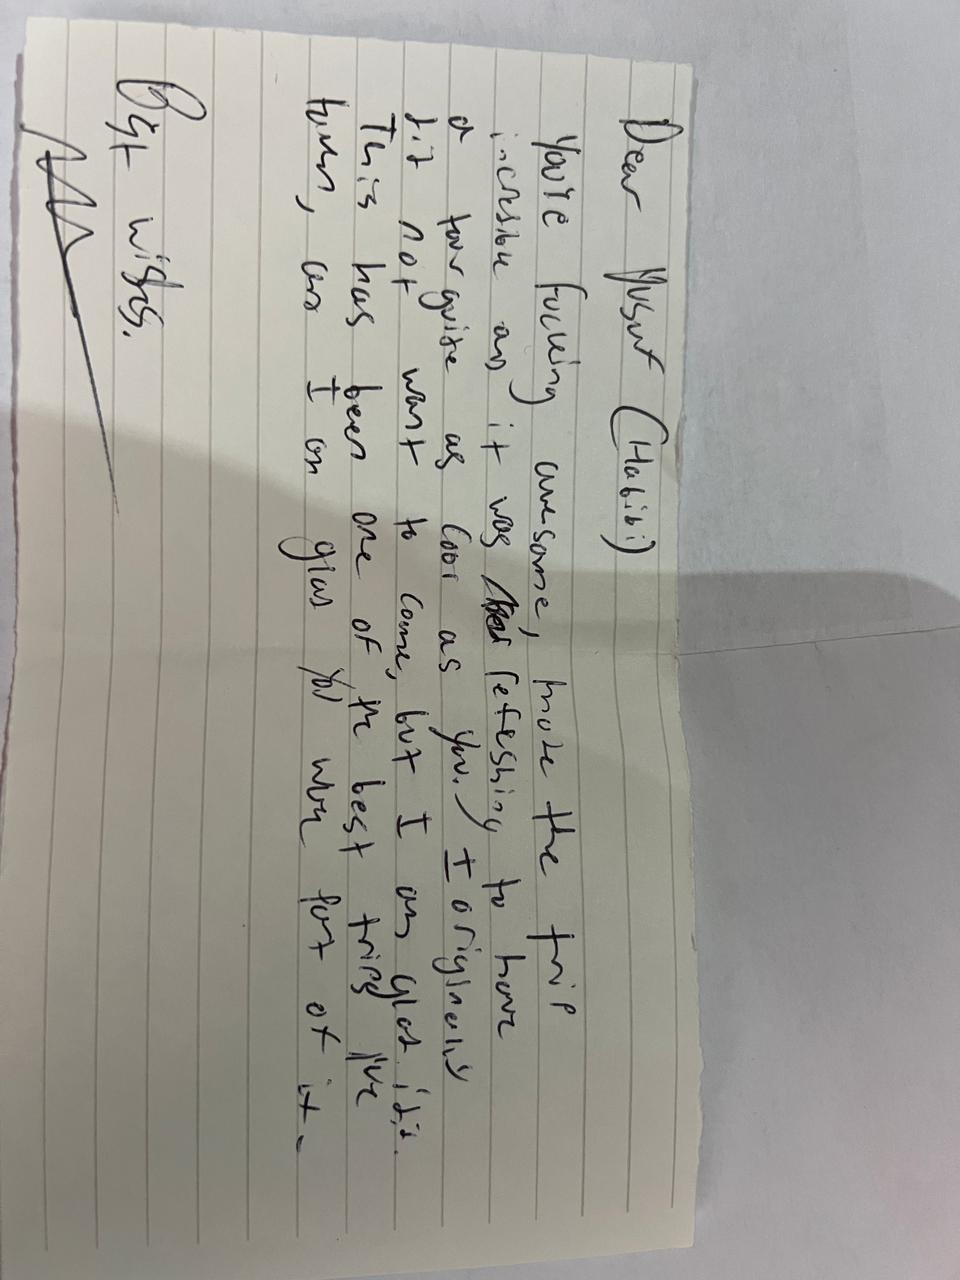 Dear Yusuf (Habibi)
You're fucking awesome, made the trip
incredible and it was refreshing to have
a tour guide as cool as you. I originally
did not want to come, but I am glad I did.
This has been one of the best trips I've
taken, and I am glad you were part of it.
Best wishes.